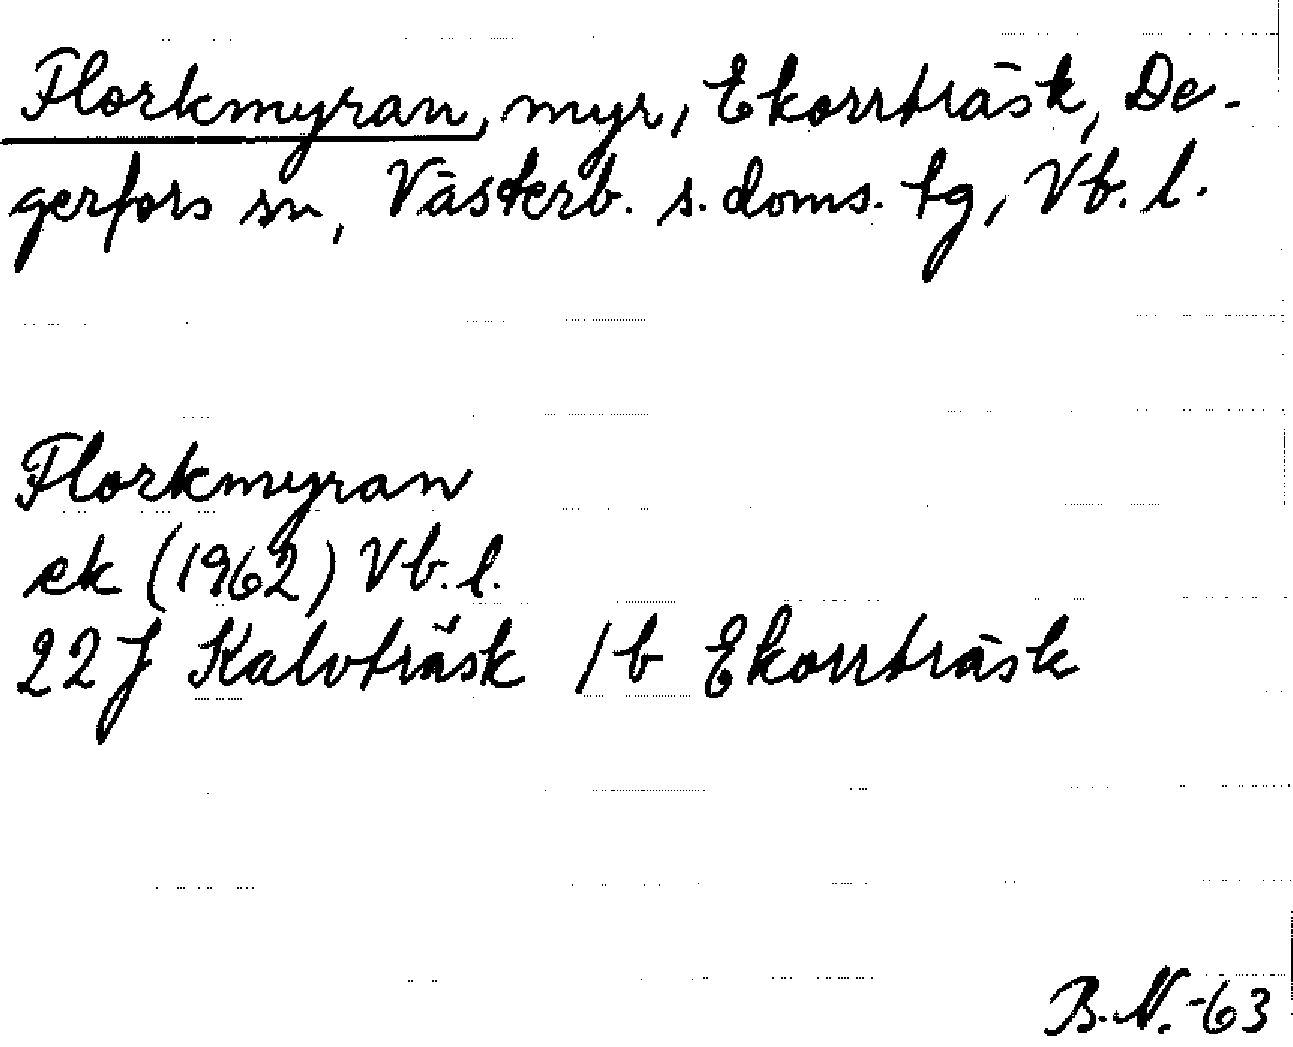 Florkmyran, myr, Ekorrträsk, De-
gerfors sn, Västerb. s. doms. tg, Vb. l.
Florkmyran
ek (1962) Vb. l.
22J Kalvträsk 1b Ekorrträsk
B.N.-63